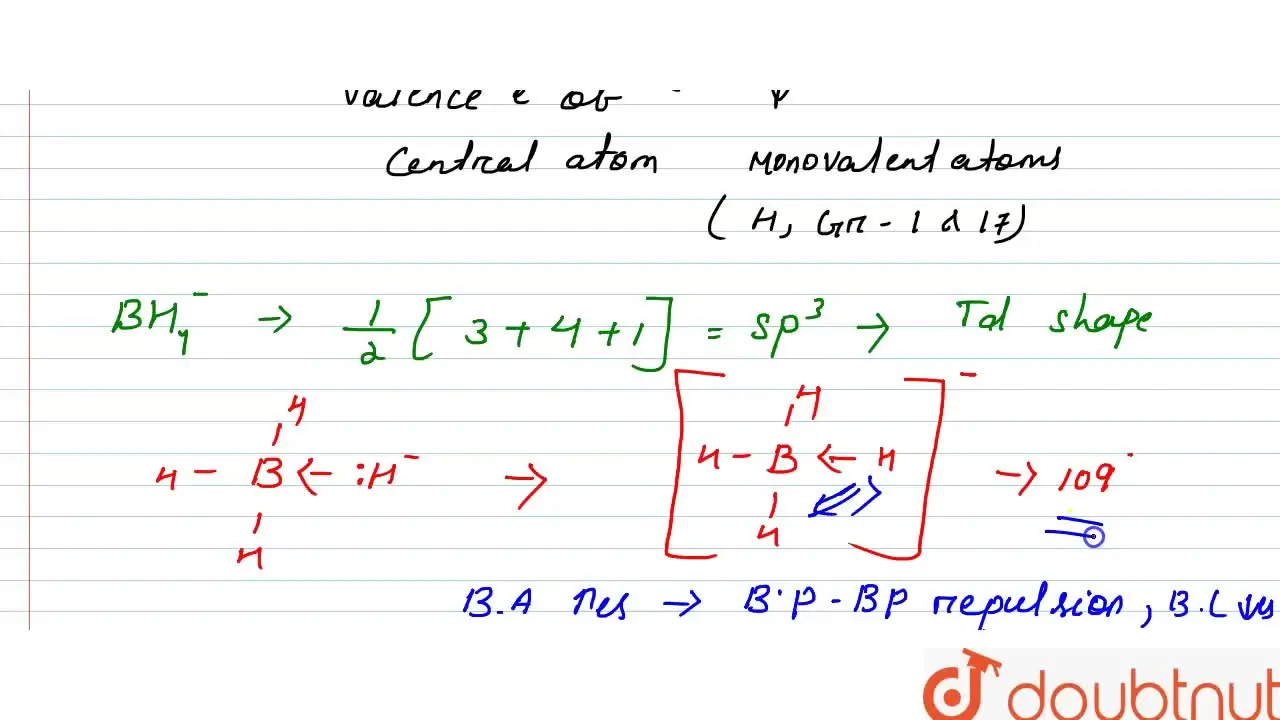 valence e of
Central atom monovalent atoms
( H, Gr - 1 & 17)
BH4⁻ → 1/2 [ 3 + 4 + 1 ] = sp³ → Td shape
H H
H - B ← :H⁻ → [ H - B ← H ]⁻ → 109°
H H
B.A ↑es → B.P - BP repulsion, B.L ↓es
doubtnut